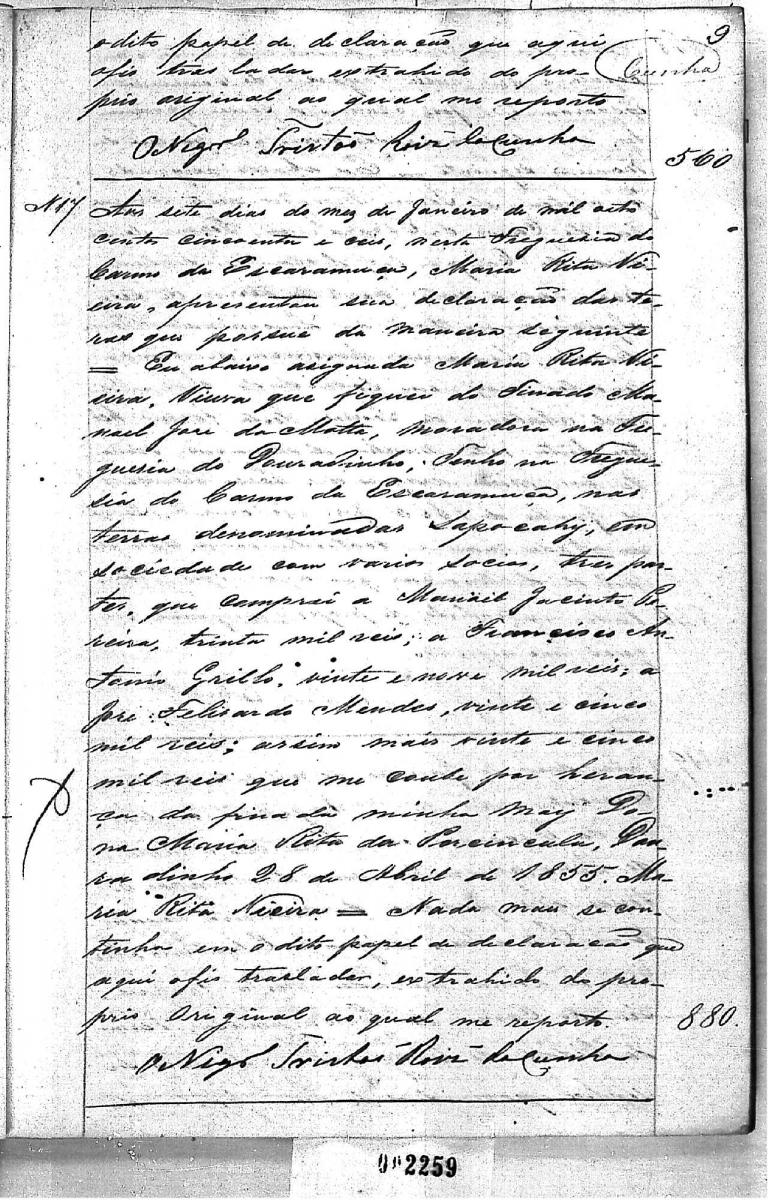 9
Cunha
o dito papel de declaração que aqui
o fis tres ladar extrahido do pro-
prio original ao qual me reporto
O Vigrº Tristão Roiz da Cunha
560
N 17 Aos sete dias do mez de Janeiro de mil oito
centos cincoenta e ceis, nesta Freguesia do
Carmo da Escaramuça, Maria Rita Vi-
eira, apresentou sua declaração das te-
ras que possue da maneira seguinte
= Eu abaixo asignada Maria Rita Vi-
eira, Viuva que fiquei do Finado Ma-
noel Jose da Motta, moradora na Fre-
guesia do Douradinho, Tenho na Fregue-
sia do Carmo da Escaramuça, nas
terras denominadas Sapocahy, em
sociedade com varios socios, tres par-
tes, que comprei a Manoel Jacinto Pe-
reira, trinta mil reis; a Francisco An-
tonio Grillo, vinte e nove mil reis; a
Jose Felisardo Mendes, vinte e cinco
mil reis; assim mais vinte e cinco
mil reis que me coube por heran-
ça da finada minha May Do-
na Maria Rita da Porcincula, Dou-
radinho 28 de Abril de 1855. Ma-
ria Rita Vieira = Nada mais se con-
tinha em o dito papel de declaração que
aqui o fis trasladar, extrahido do pro-
prio Original ao qual me reporto.
880.
O Vigrº Tristão Roiz da Cunha
002259